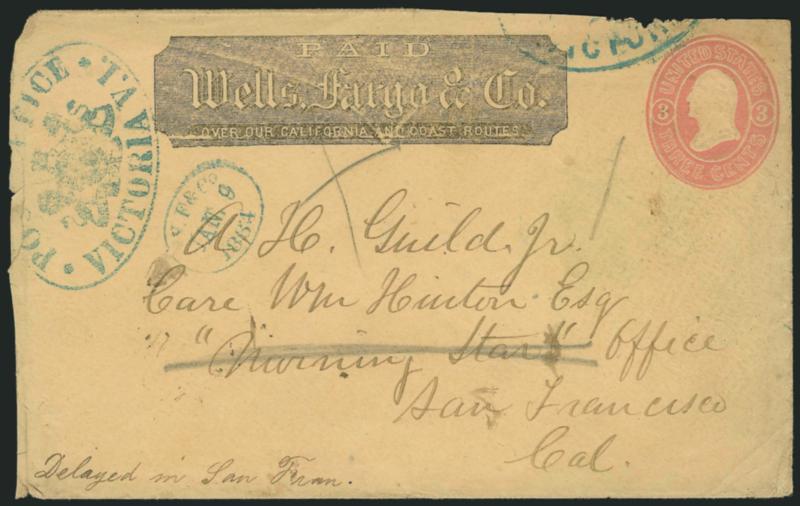 POST OFFICE • PAID • VICTORIA V.I.
VICTOR
PAID
Wells, Fargo & Co.
OVER OUR CALIFORNIA AND COAST ROUTES.
UNITED STATES
3 3
THREE CENTS
JAN 9
1864
A. H. Guild, Jr.
Care Wm Hinton Esq
"Morning Star" Office
San Francisco
Cal.
Delayed in San Fran.